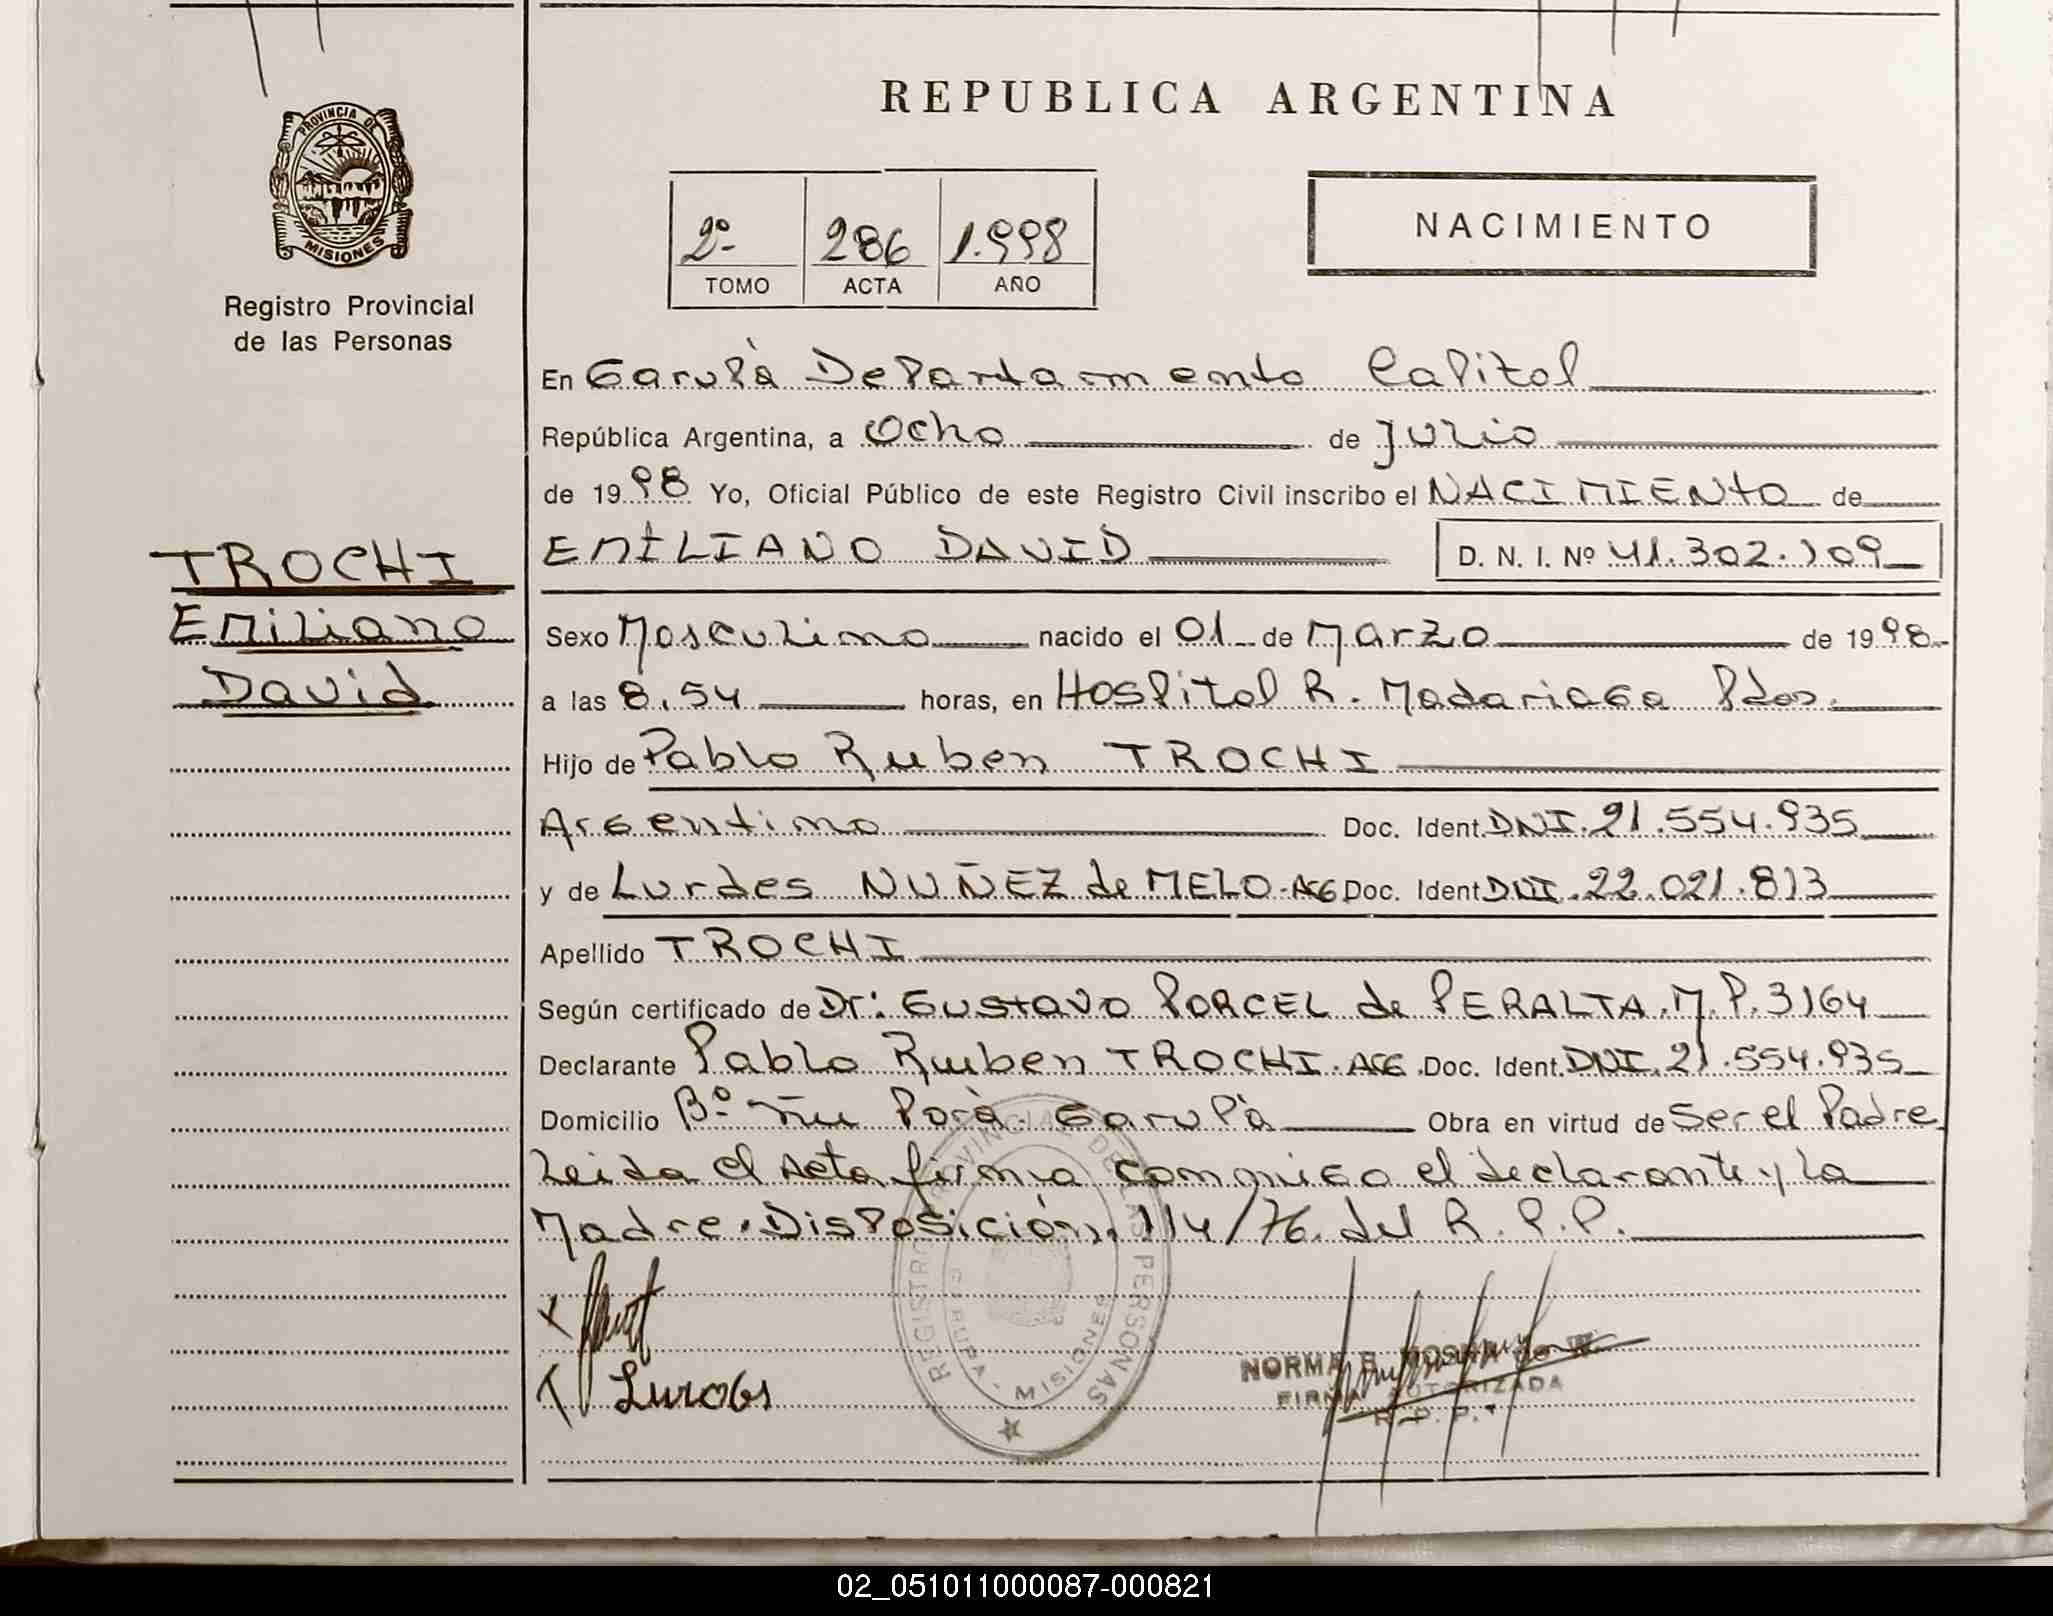 REPUBLICA ARGENTINA
PROVINCIA DE
MISIONES
Registro Provincial
de las Personas
2º 286 1.998
TOMO ACTA AÑO
NACIMIENTO
En Garupà Departamento Capital
República Argentina, a Ocho de Julio
de 1998 Yo, Oficial Público de este Registro Civil inscribo el NACIMIENTO de
EMILIANO DAVID D. N. I. Nº 41.302.109
TROCHI
Emiliano
David
Sexo Masculino nacido el 01 de Marzo de 1998
a las 8.54 horas, en Hospital R. Madariaga Pdas.
Hijo de Pablo Ruben TROCHI
Argentino Doc. Ident. DNI. 21.554.935
y de Lurdes NUÑEZ de MELO. ARG Doc. Ident DNI. 22.021.813
Apellido TROCHI
Según certificado de Dr: Gustavo PORCEL de PERALTA. M.P. 3164
Declarante Pablo Ruben TROCHI. ARG. Doc. Ident. DNI. 21.554.935
Domicilio Bº Ñu Porà. Garupà Obra en virtud de Ser el Padre
Leida el Acta firma conmigo el declarante y la
Madre. Disposición. 114/76. del R. P. P.
REGISTRO PROVINCIAL DE LAS PERSONAS
GARUPA - MISIONES
Lurdes
NORMA B.
FIRMA AUTORIZADA
R. P. P.
02_051011000087-000821